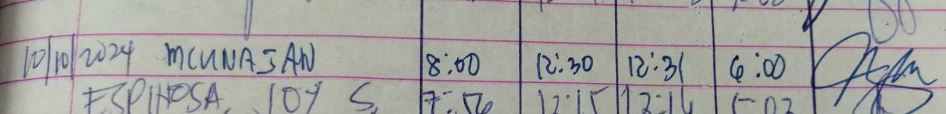 10/10/2024 MCUNAJAN 8:00 12:30 12:31 6:00
ESPINOSA, JOY S. 7:56 12:15 12:16